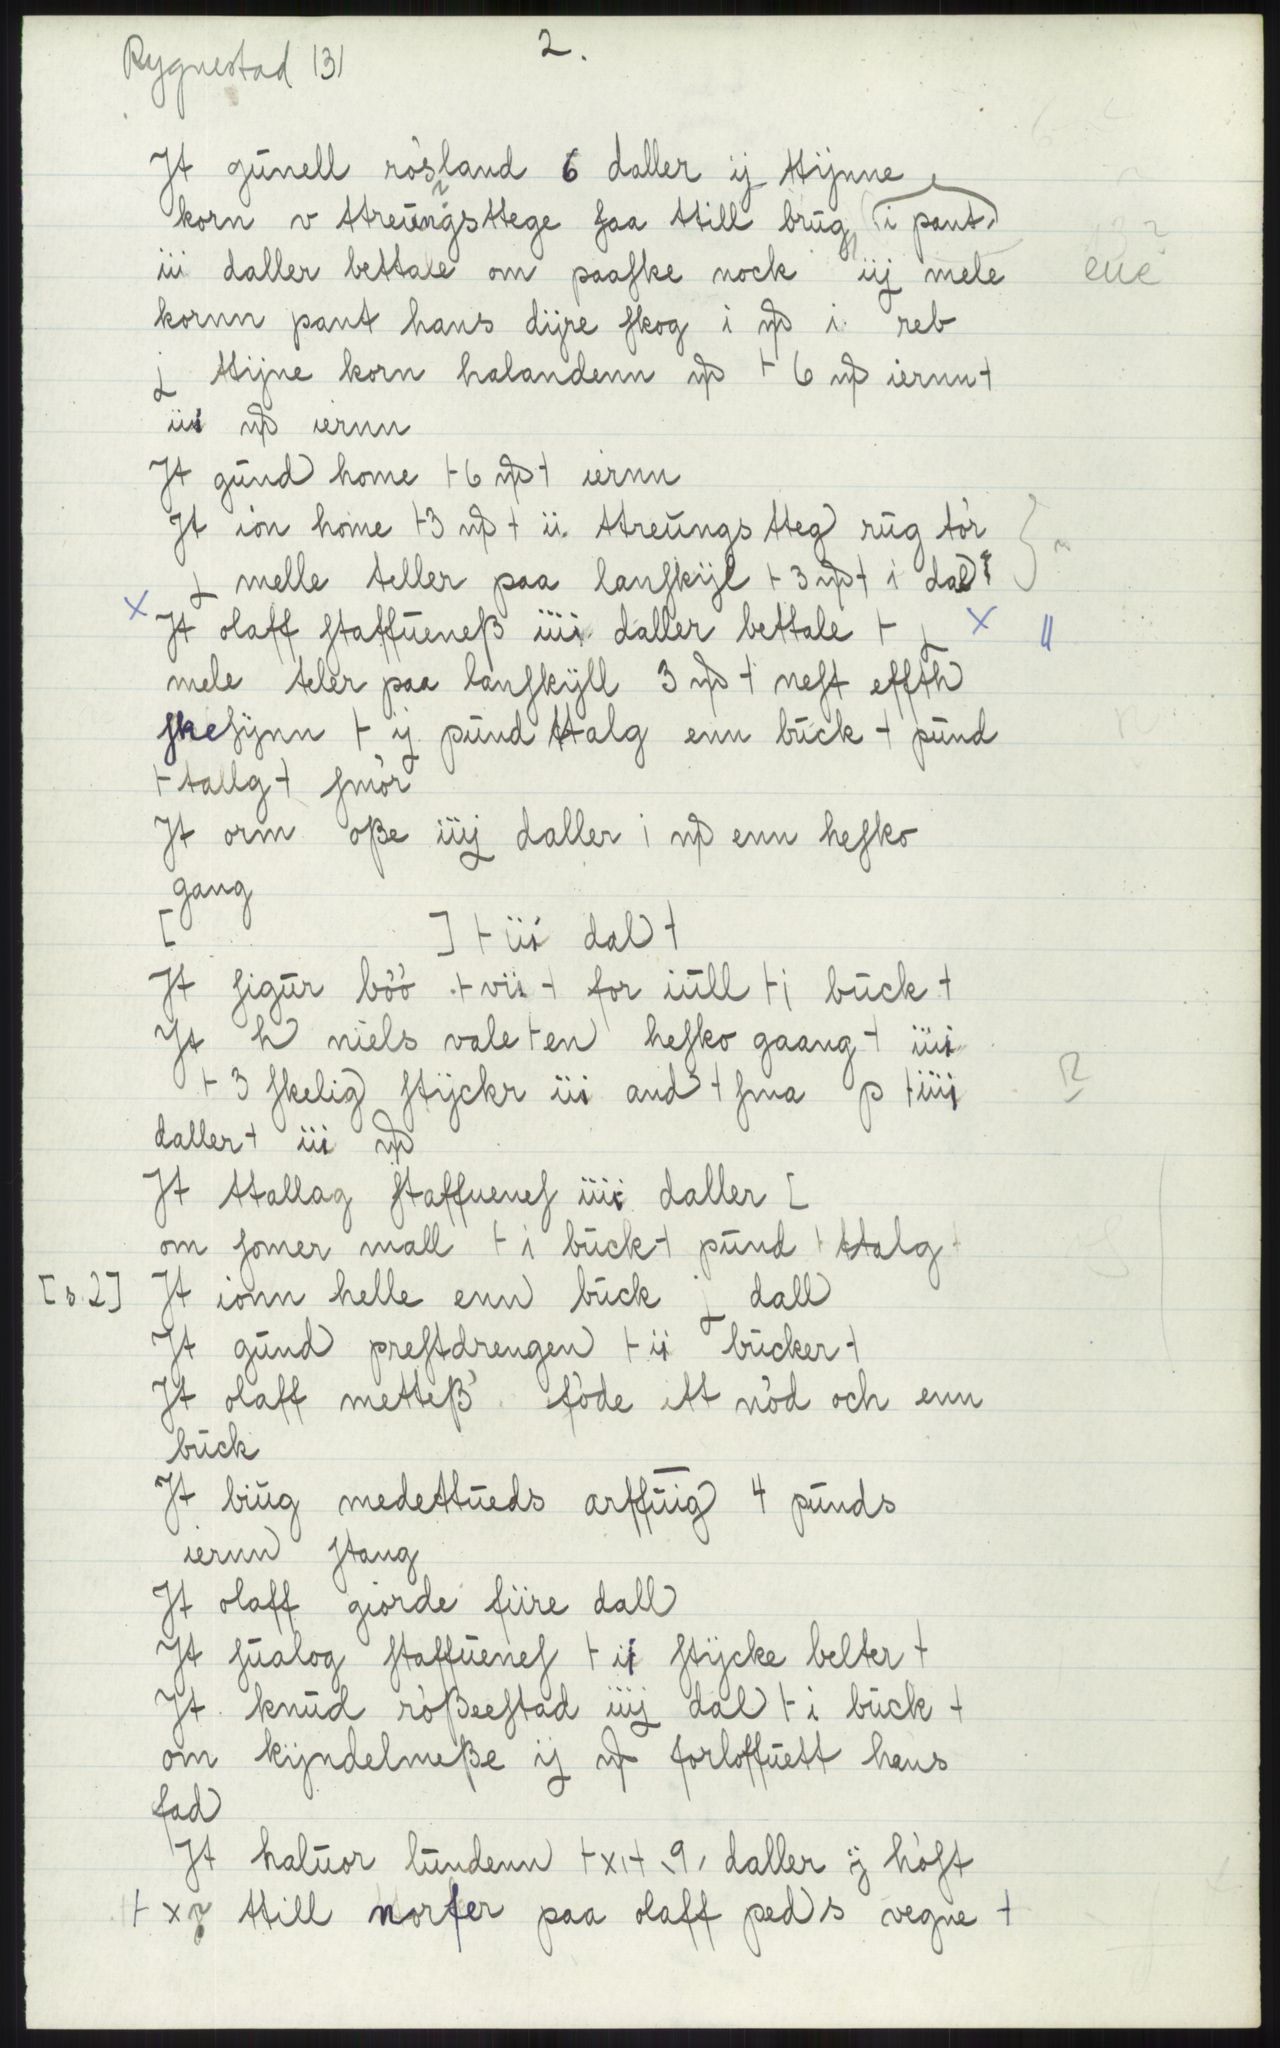 Rygnestad 131
2.
Jt gūnell rósland 6 daller ij ttijnne
korn v ttreūngsttege ſaa ttill brūg (i pant)
iii daller bettale om paaſke nock iij mele eue
kornn pant hans dijre ſkog i i reb
j ttijne korn halandenn ⱶ 6 iernn ⱶ
iii iernn
Jt gūnd home ⱶ 6 ⱶ iernn
Jt ión home ⱶ3 ⱶ ii ttreūngs tteg rūg tór
j melle teller paa lanſkijl ⱶ 3 ⱶ i dal
x Jt olaff ſtaffūeneß iiii daller bettale ⱶ j x "
mele teler paa lanſkijll 3 ⱶ neſt effth
ſkeſijnn ⱶ ij pūnd ttalg enn būck ⱶ pūnd
ⱶ tallg ⱶ ſmór
Jt orm oße iiij daller i enn heſko
gang
[ ] ⱶ iii dal ⱶ
Jt ſigūr bóó ⱶ vii ⱶ for iūll ⱶ i būck ⱶ
Jt h niels valeten heſko gaang ⱶ iiii
ⱶ 3 ſkelig ſtijckr iii and ⱶ ſma p ⱶ iiii
daller ⱶ iii
Jt ttallag ſtaffueneſ iiii daller [
om ſomer mall ⱶ i būck ⱶ pūnd ⱶ ttalg ⱶ
[s. 2] Jt ionn helle enn būck j dall
Jt gūnd preſtdrengen ⱶ ii bücker ⱶ
Jt olaff metteß fóde itt nód och enn
būck
Jt biūg medettūeds arffūig 4 pūnds
iernn ſtang
Jt olaff giorde fiire dall
Jt ſūalog ſtaffūeneſ ⱶ ii ſtijcke belter ⱶ
Jt knūd róßeeſtad iiij dal ⱶ i būck ⱶ
om kijndelmeße ij forloffūett hans
fad
Jt halūor lūndenn ⱶxⱶ 9, daller ij hóſt
ⱶ x ttill norfer paa olaff peds vegne ⱶ